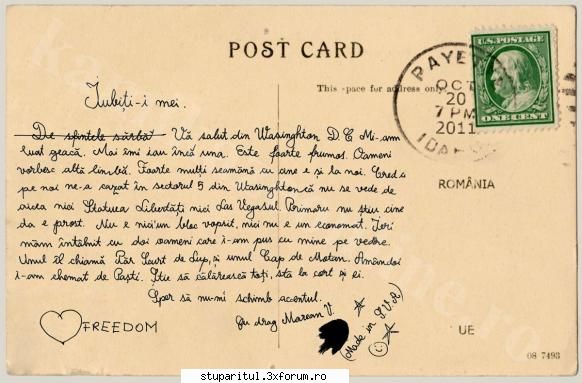 POST CARD
This space for address only
PAYE
OCT
20
7 PM
2011
IDA
U.S. POSTAGE
ONE CENT
Iubiți-i mei.
De sfintele sărbă Vă salut din Wasinghton D.C Mi-am
luat geacă. Mai îmi iau încă una. Este foarte frumos. Oameni
vorbesc altă limbă. Foarte mulți seamănă cu ane e și la noi. Cred că
pe noi ne-a cazat în sectorul 5 din Wasinghton că nu se vede de
aicea nici Statuea Libertăți nici Las Vegasul. Primaru nu știu cine
da e prost. Nu e nici'un bloc vopsit, nici nu e un economat. Ieri
m-am întâlnit cu doi oameni care i-am pus cu mine pe vedere.
Unul îl chiamă Păr Scurt de Lup, și unul Cap de Moton. Amândoi
i-am chemat de Paști. Știe să călărească toți, sta la cort și ei.
Sper să nu-mi schimb acentul.
Cu drag Marean V.
FREEDOM
(Made in S.U.A)
ROMÂNIA
UE
08 7493
stuparitul.3xforum.ro